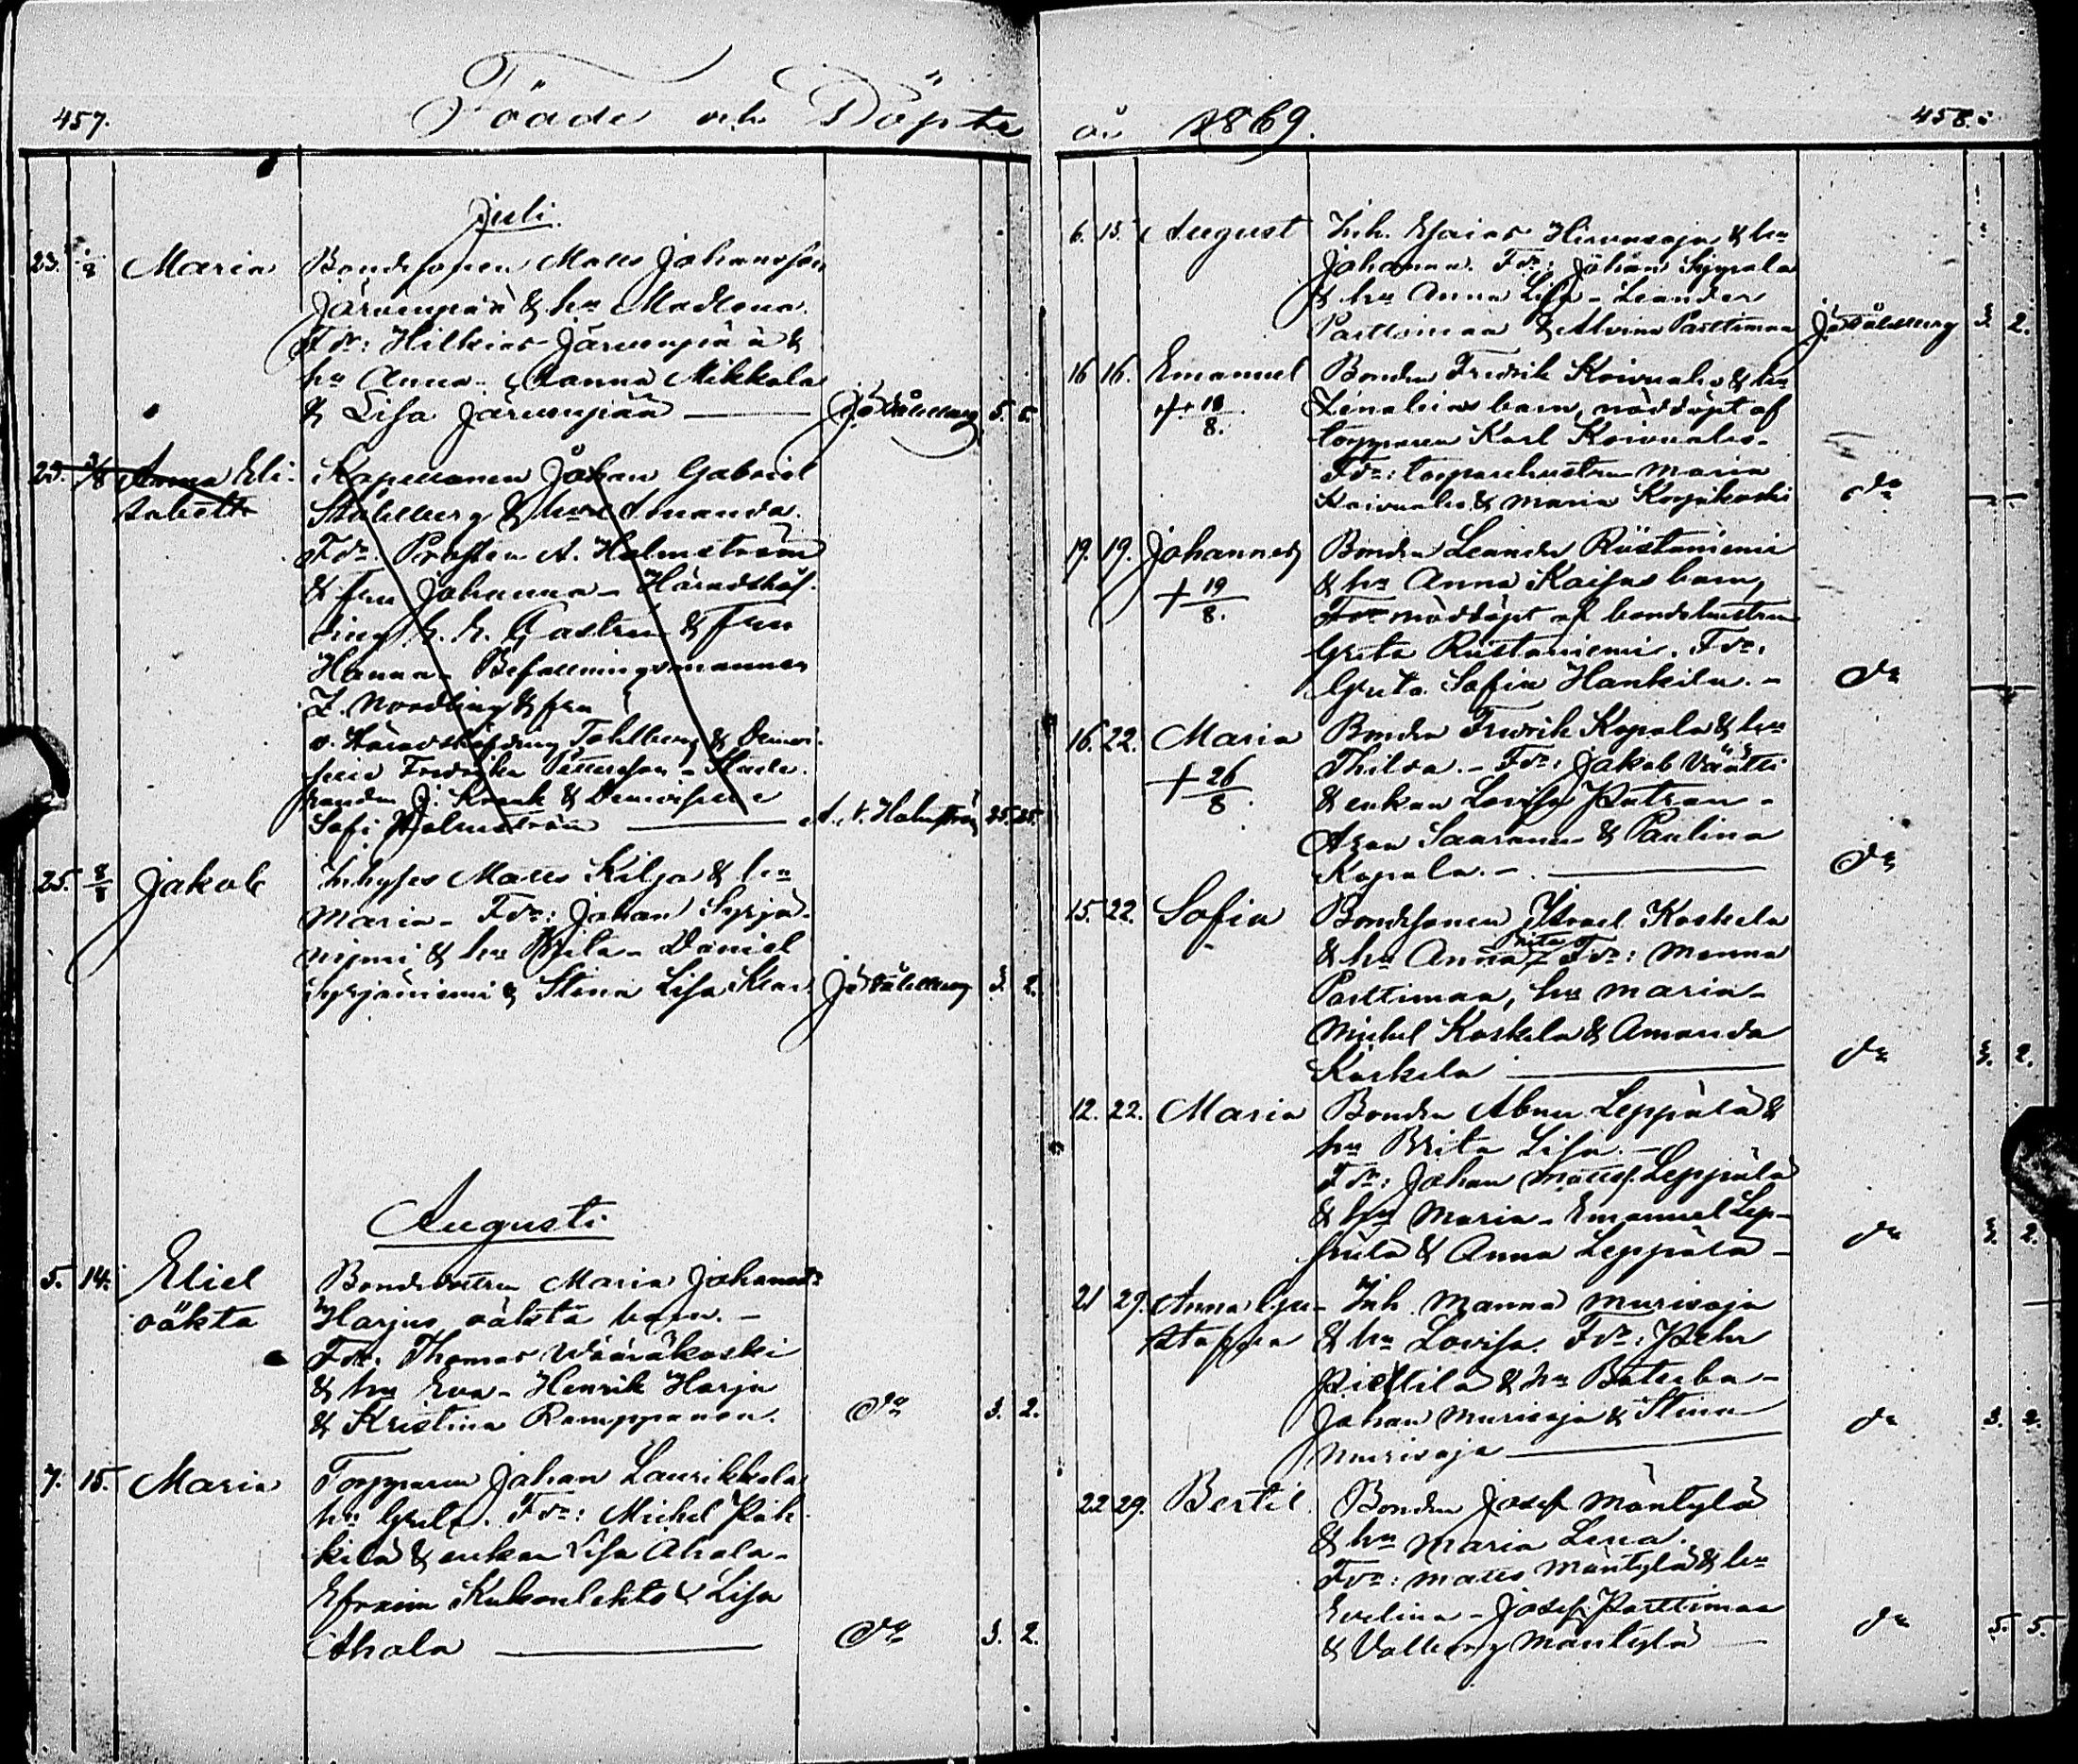 457.
Födde och Döpte
år 1869.
458.
Juli.
23. 1/8 Maria Bondesonen Matts Johansson
Järvenpää & hu Madlena.
Fdr: Hilkias Järvenpää &
hu Anna - Manna Mikkola
& Lisa Järvenpää — J. Ståhlberg 5. 5.
23. 3/8 Anna Eli- Kapellanen Johan Gabriel
sabeth Ståhlberg & hu Amanda.
Fdr. Prosten A. Holmström
& fru Johanna - Häradshöf-
ding G. E. Castrén & fru
Hanna - Befallningsmannen
Z. Nordling & fru
v. Häradshöfding Tahlberg & Demoi-
selle Fredrika Pettersson - Stude-
randen J. Krank & Demoiselle
Sofi Holmström — A. V. Holmström 25. 25.
25. 8/8 Jakob Inhyses Matts Kilja & hu
Maria - Fdr: Johan Syrjä-
niemi & hu - Daniel
Syrjäniemi & Stina Lisa J. Ståhlberg 3. 2.
Augusti
5. 14. Eliel Bondedottren Maria Johansdr
oäkta Harjus oäkta barn. -
Fdr. Thomas Wääräkoski
& hu Eva - Henrik Harju
& Kristina Ramppanen. do 3. 2.
7. 15. Maria Torpparen Johan Laurikkala
hu Greta. Fdr: Michel Päk-
kilä & enkan Lisa Ahola -
Efraim Kukonlehto & Lisa
Ahola — do 3. 2.
6. 15. August Inh. Esaias Hirvasoja & hu
Johanna. Fdr: Johan Sippala
& hu Anna Lisa - Leander
Parttimaa & Alvina Parttimaa J. Ståhlberg 3. 2.
16 16. Emanuel Bonden Fredrik Koivuaho & hu
+ 18/8. barn, nöddöpt af
torpparen Karl Koivuaho -
Fdr: torparehustrun Maria
Koivuaho & Maria Korpikoski do
19. 19. Johannes Bonden Leander Ristaniemi
+ 19/8. & hu Anna Kaisas barn,
Fdr nöddöpt af bondehustrun
Greta Ristaniemi. Fdr.
Greta Sofia Hankila. - do
16. 22. Maria Bonden Fredrik Kopala & hu
+ 26/8. Thilda. - Fdr: Jakob Väätti
& enkan Lovisa -
Saaranen & Paulina
Kopala. - — do
15. 22. Sofia Bondesonen Israel Koskela
& hu Anna Brita Fdr: Manna
Parttimaa, hu Maria -
Michel Koskela & Amanda
Koskela — do 3. 2.
12. 22. Maria Bonden Abner Leppälä &
hu Brita Lisa. -
Fdr: Johan Mattss. Leppälä
& hu Maria - Emanuel Lep-
pälä & Anna Leppälä - do 3. 2.
21 29. Anna Gu- Inh. Manna Murisoja
stafva & hu Lovisa. Fdr: Pehr
Piettilä & hu -
Johan Murisoja & Stina
Murisoja — do 3. 2.
22 29. Bertil. Bonden Josef Mäntylä
& hu Maria Lena.
Fdr: Matts Mäntylä & hu
Evelina - Josef Parttimaa
& Valborg Mäntylä — do 5. 5.